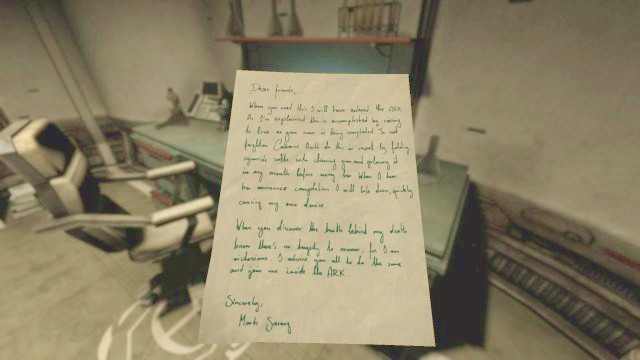 Dear friends,
When you read this I will have entered the ARK.
As I've explained this is accomplished by ceasing
to live as your scan is being completed. To not
frighten Catherine I will do this in secret by folding
cyanide salts into chewing gum and placing it
in my mouth before seeing her. When I hear
her announce completion I will bite down, quickly
causing my own demise.
When you discover the truth behind my death
know there's no tragedy to mourn, for I am
victorious. I advise you all to do the same
and join me inside the ARK
Sincerely,
Mark Sarang